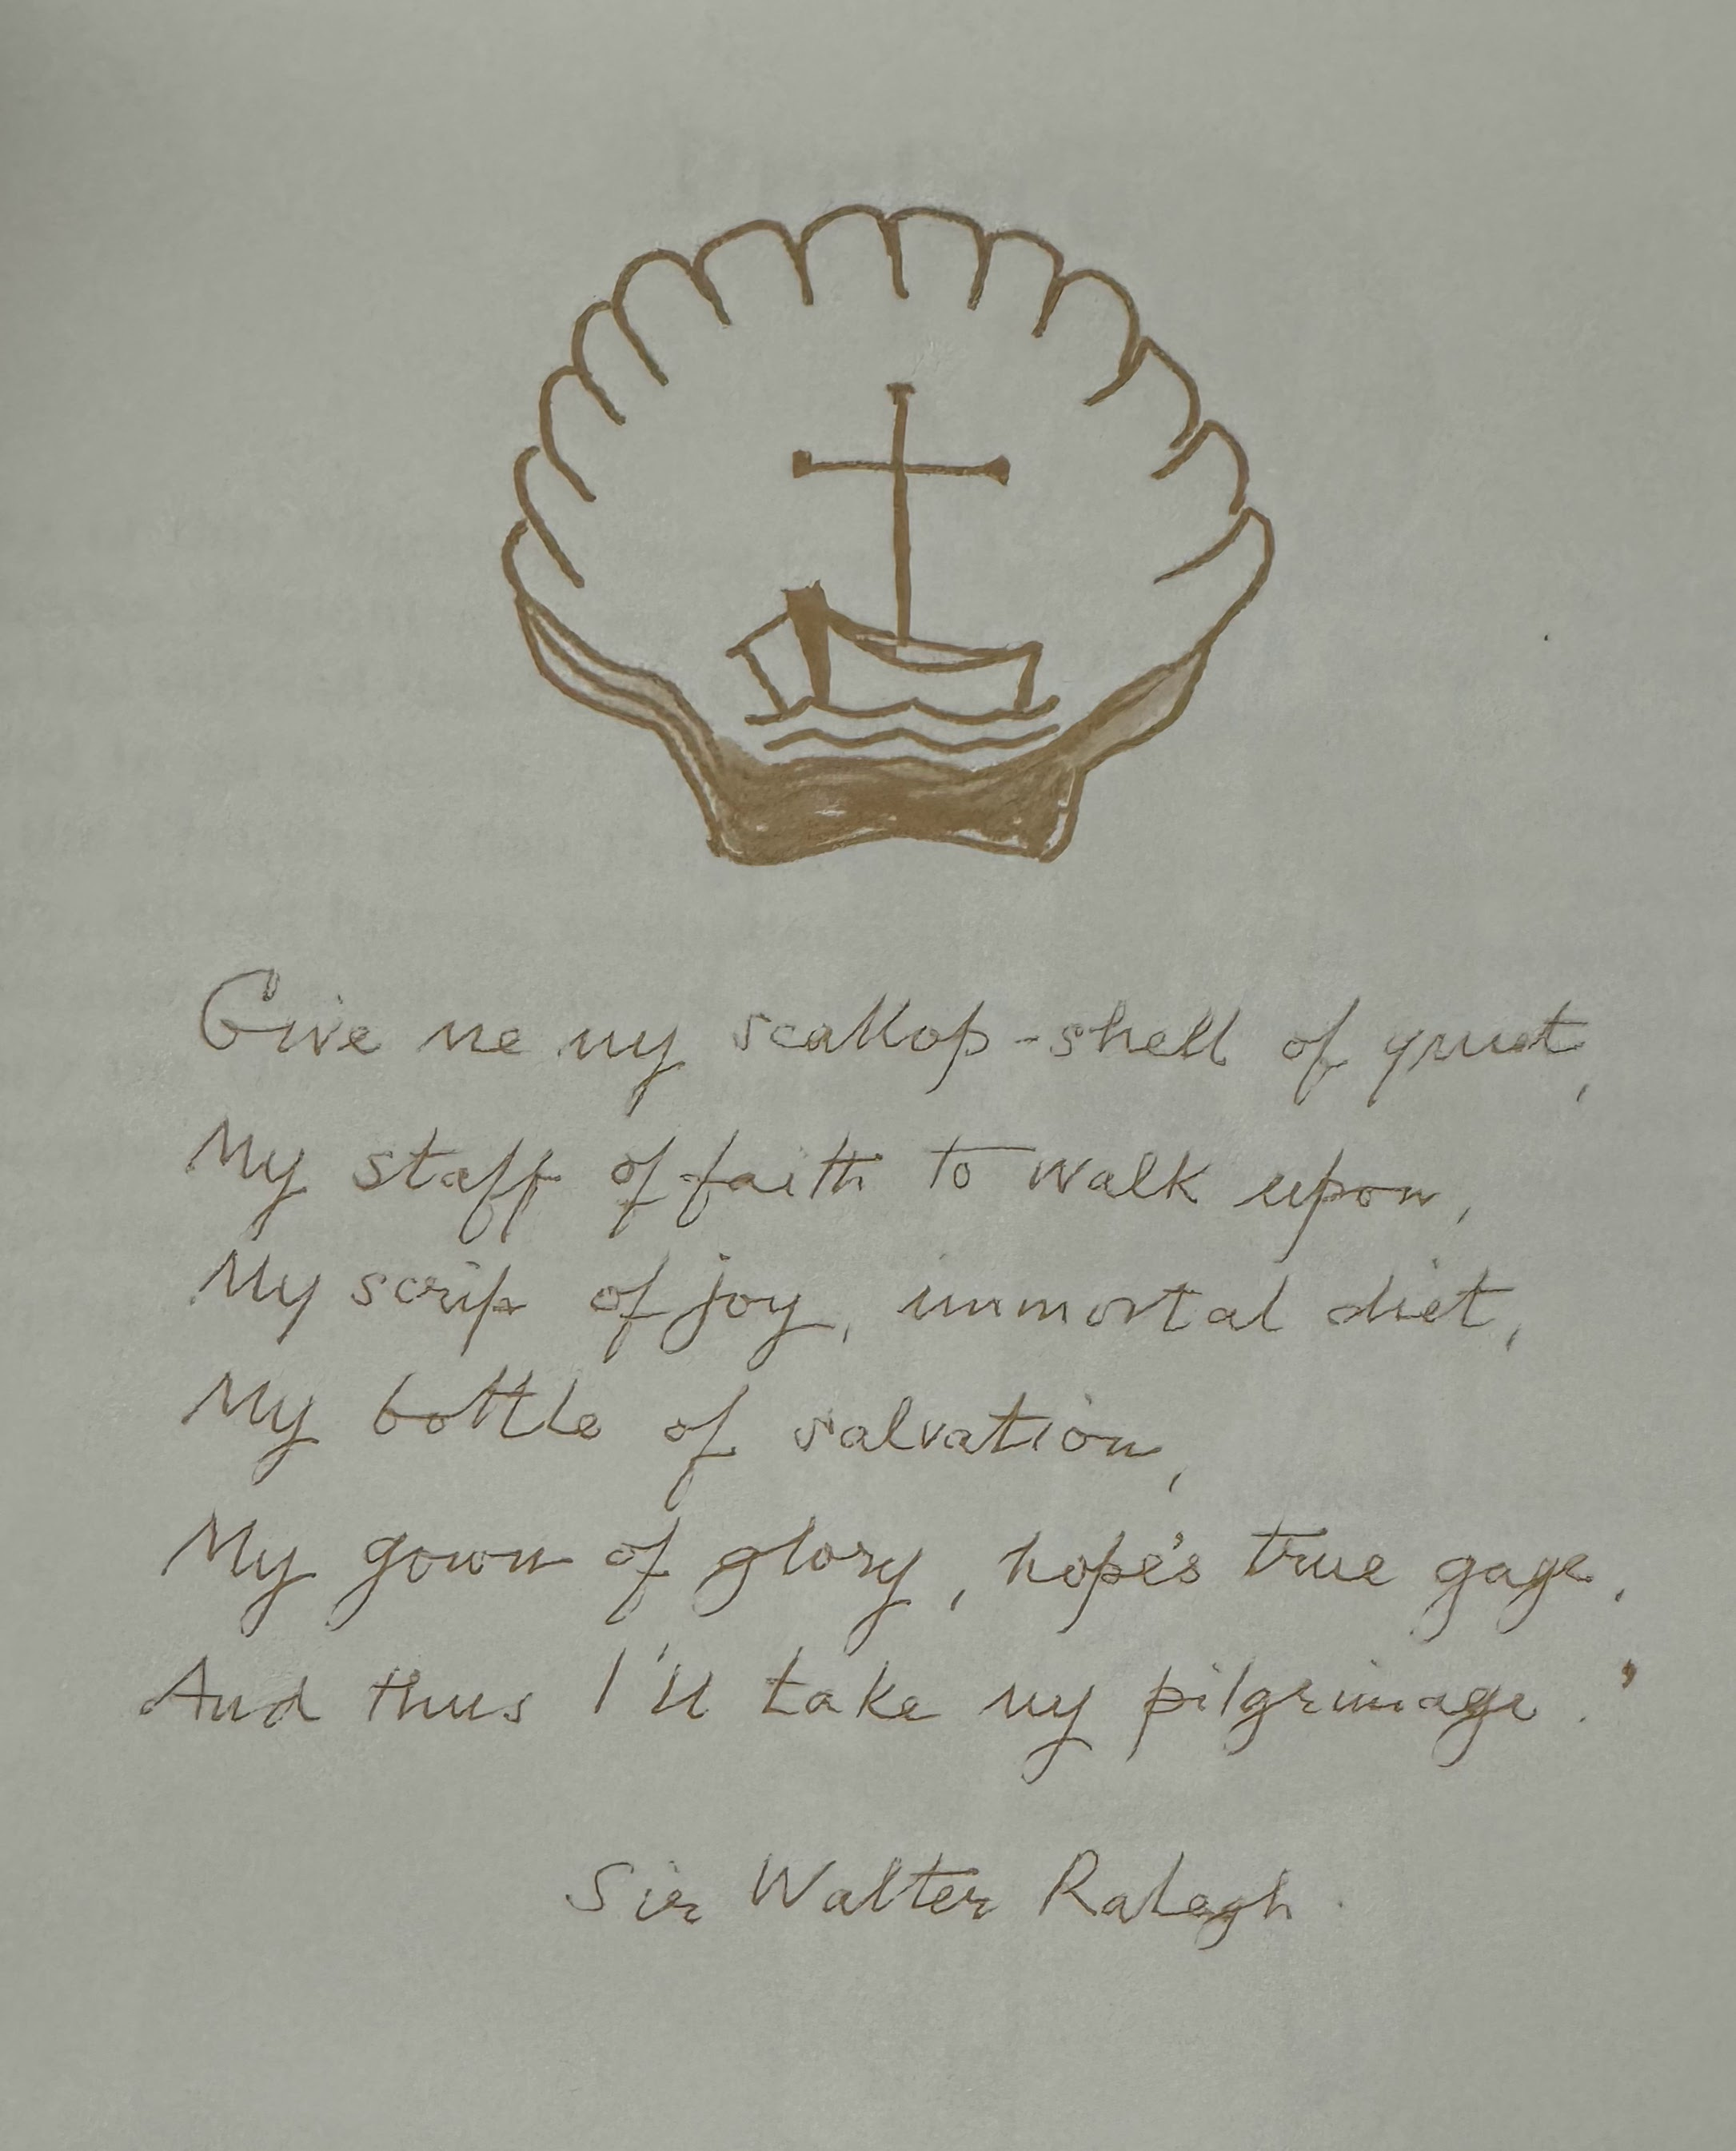 Give me my scallop-shell of quiet,
My staff of faith to walk upon,
My scrip of joy, immortal diet,
My bottle of salvation,
My gown of glory, hope's true gage,
And thus I'll take my pilgrimage.'
Sir Walter Ralegh.